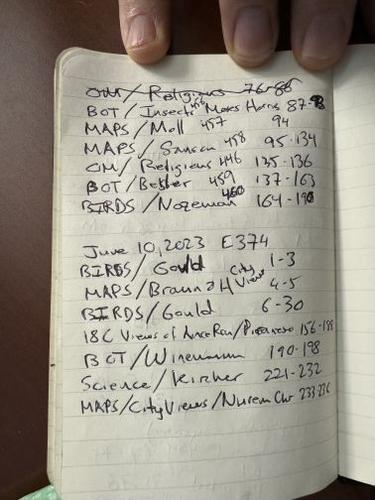 OM/Religious 76-86
BOT/Insects 456 Moses Harris 87-93
MAPS/Moll 457 94
MAPS/Sanson 458 95-134
OM/Religious 446 135-136
BOT/Besler 459 137-163
BIRDS/Nozeman 460 164-190
June 10, 2023 E374
BIRDS/Gould 1-3
MAPS/Braun & H City Views 4-5
BIRDS/Gould 6-30
18C Views of Anc Rom/Piranesi 156-188
BOT/Weinmann 190-198
Science/Kircher 221-232
MAPS/City Views/Nurem Chr 233-236